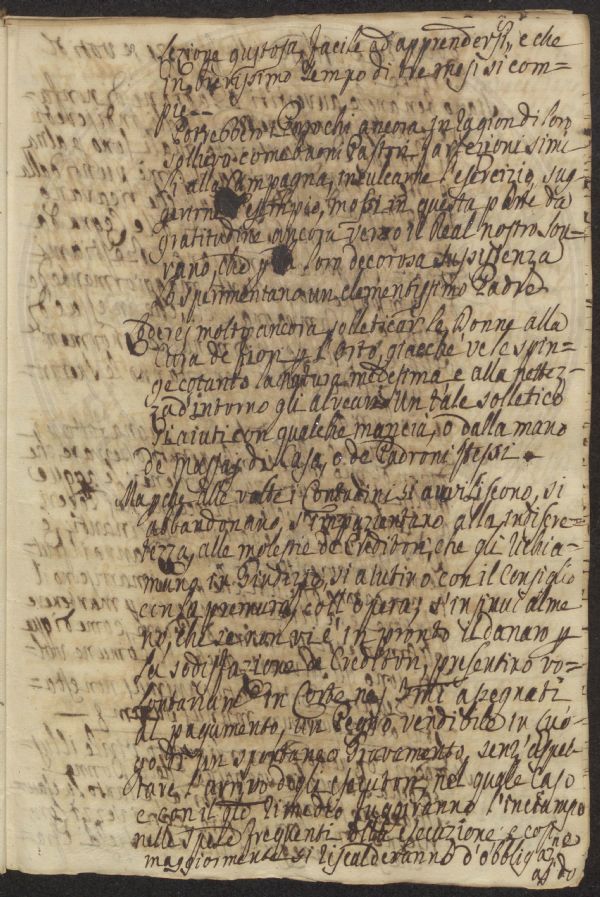 lezione gustosa, facile ad apprendersi, e che
in brevissimo tempo di tre mesi si com=
pie.
Potrebbero i Parochi ancora in ragion di loro
sollievo come buoni Pastori, affezionissimi
alla Campagna, inculcarne l'esercizio, sug=
gerirne l'esempio, mossi in questa parte da
gratitudine ancora verso il Real nostro Sou=
vrano, che p la loro decorosa sussistenza
lo sperimentano un clementissimo Padre
molto ancora solleticar le Donne alla
de fiori p l'Orto, giacchè ve le spin=
ge cotanto la natura medesima e alla nettez=
za d'intorno gli alveari. Un tale solletico
si aiuti con qualche mancia, o dalla mano
de' di Casa, o de Padroni stessi.
Ma pche alle volte i Contadini si avviliscono, si
abbandonano, s'impazientano alla indiscre=
tezza, alle molestie de Creditori, che gli richia=
mano in Giudizio, si aiutino con il Consiglio
con la premura, coll'opera; s'insinui alme
no, che se non vi è in pronto il danaro p
la sodisfazione de Creditori, presentino vo=
lontariam in Corte nei assegnati
al pagamento, un Pegno vendibile in luo=
go di un spontaneo Gravamento, senz'aspet=
tare l'arrivo degli esecutori, nel quale Caso
e con il qto rimedio fuggiranno l'inciampo
nelle spese frequenti esecuzione e così
maggiormente si riscalderanno d'obbligaz